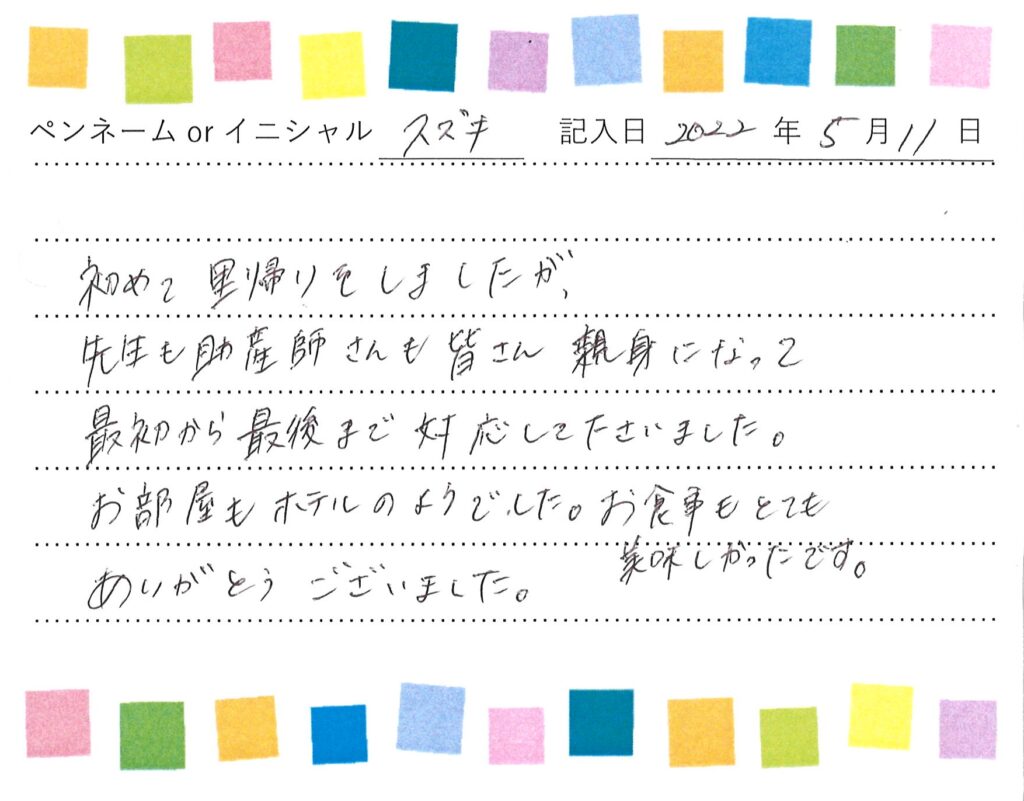 ペンネーム or イニシャル スズキ 記入日 2022 年 5 月 11 日
初めて里帰りをしましたが、
先生も助産師さんも皆さん親身になって
最初から最後まで対応して下さいました。
お部屋もホテルのようでした。お食事もとても
美味しかったです。
ありがとうございました。